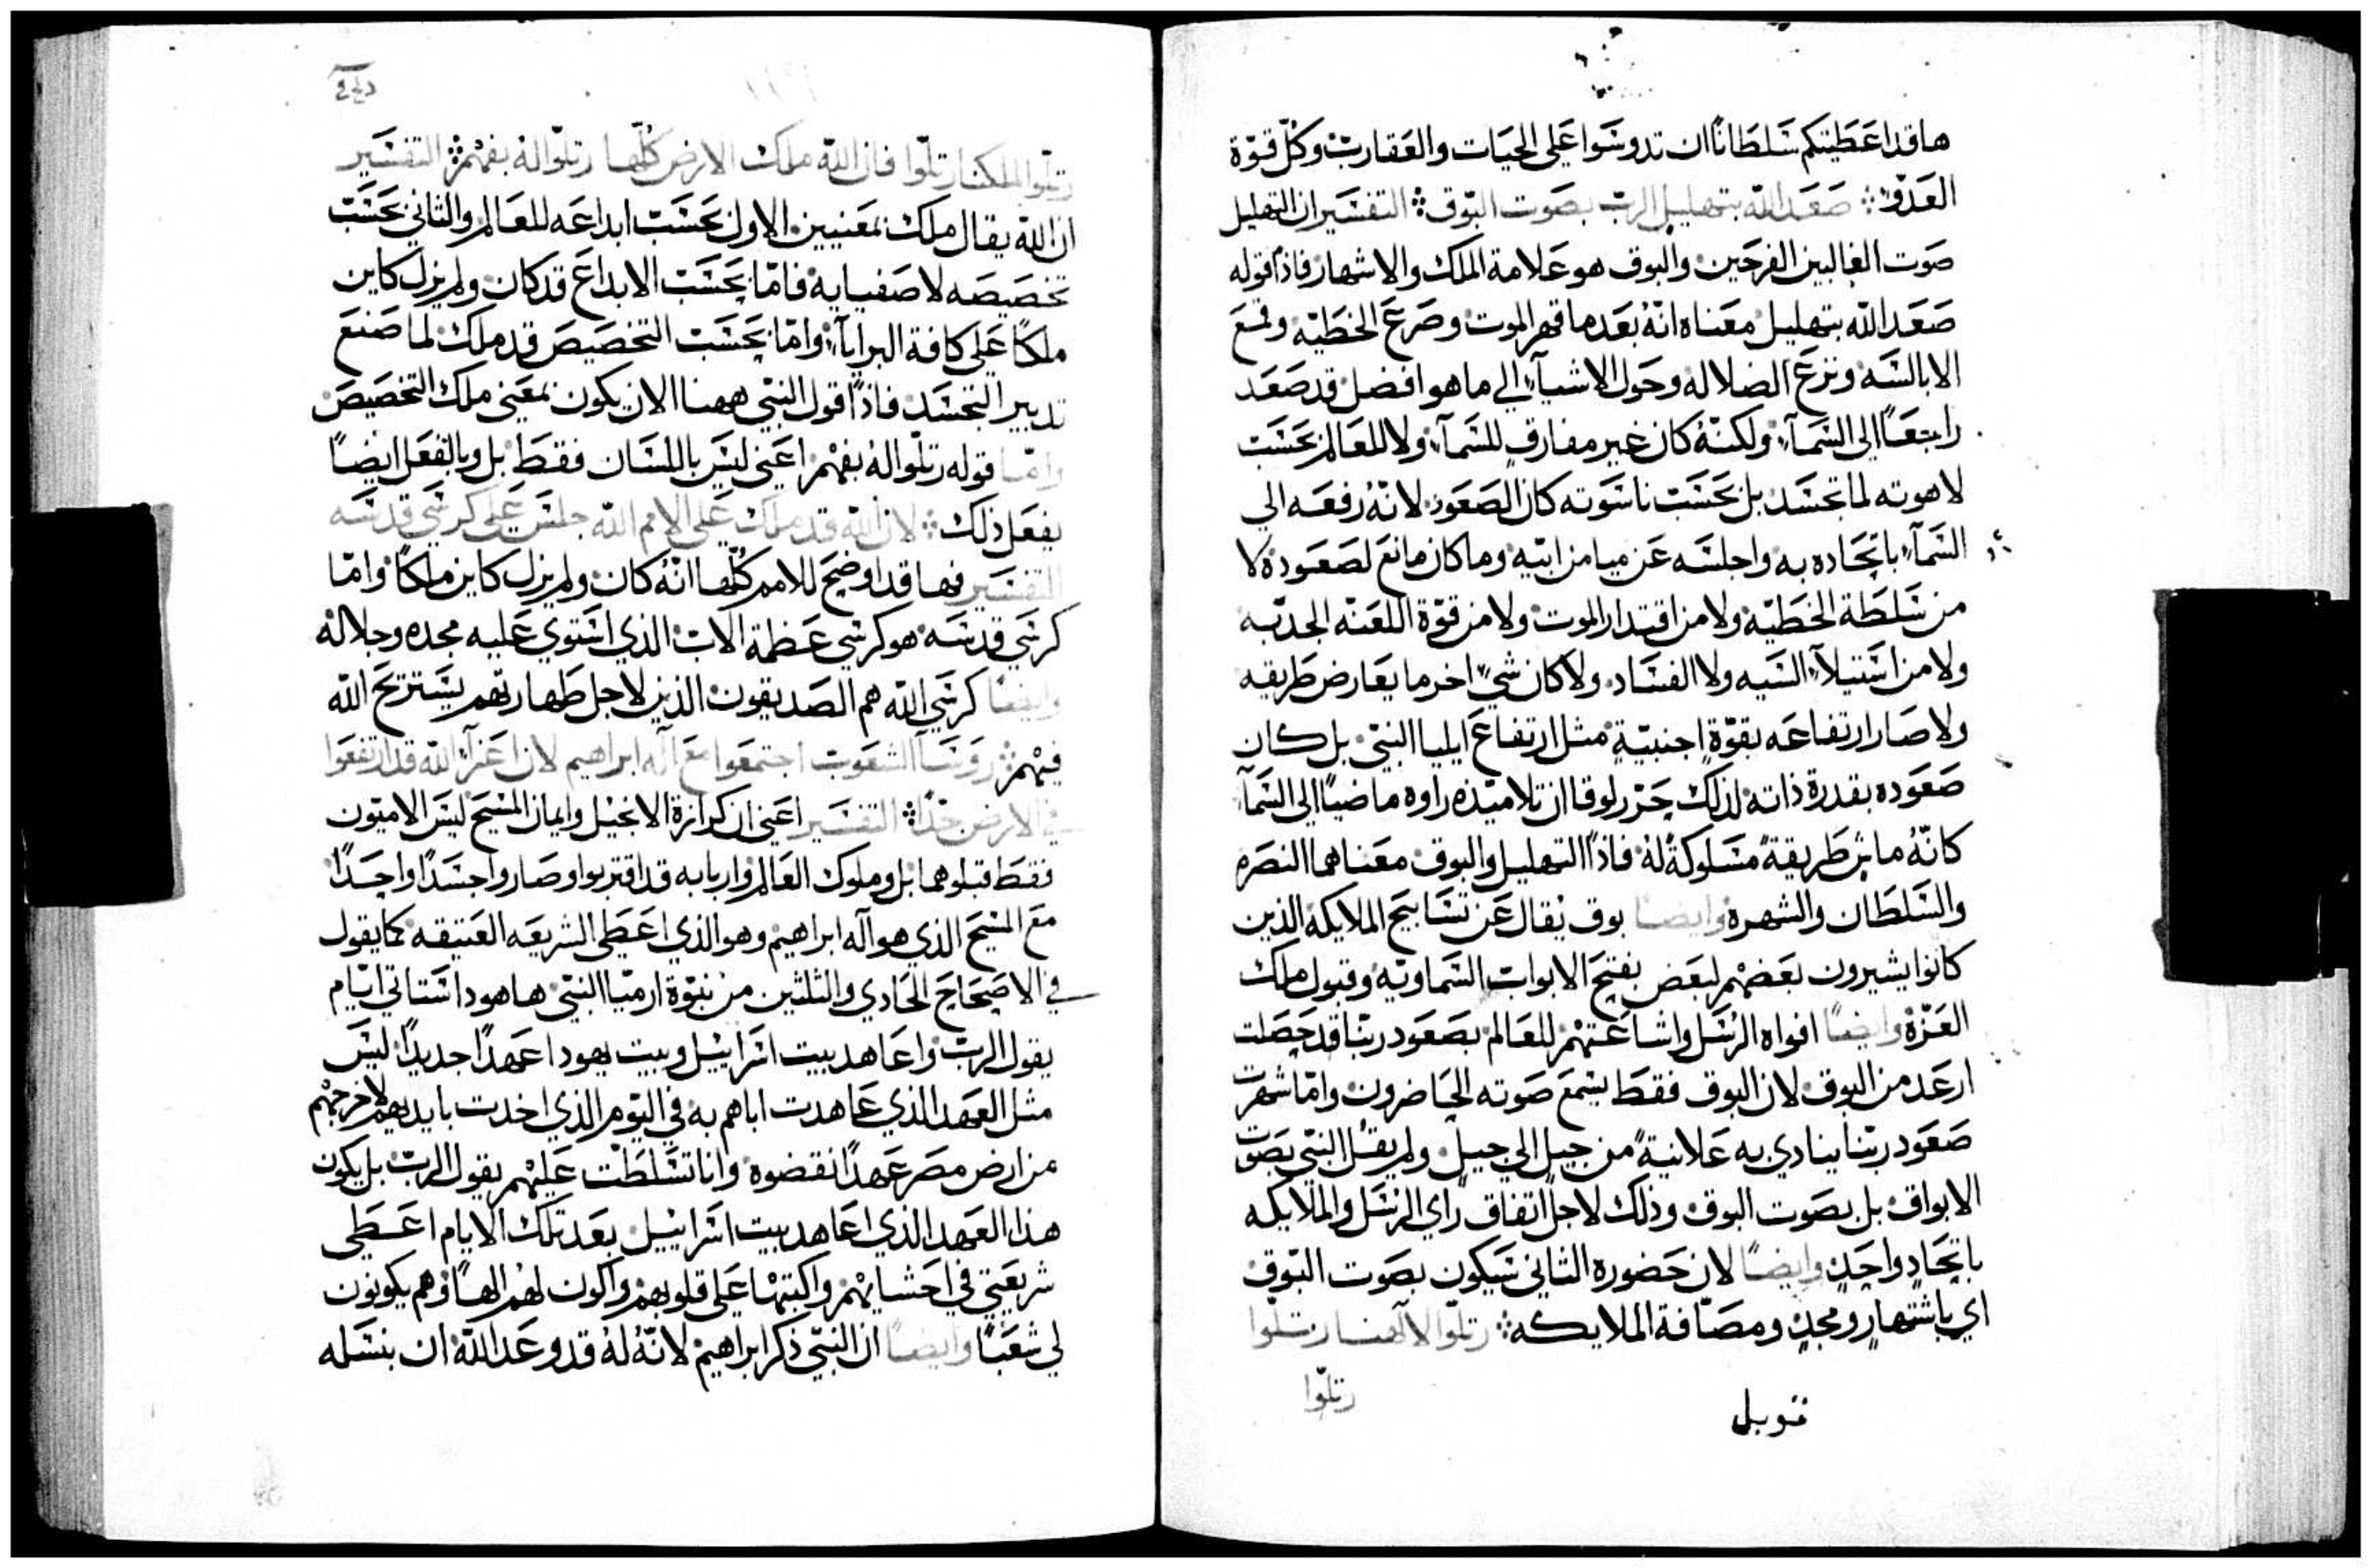 هاقد اعَطَيتكم سَلطَانًا ان تدوسَوا عَلى الحيَات والعَقاربْ وكلّ قوّة
العَدوّ ܀ صَعَد اللّه بتهليل الربّ بصَوت البّوق ܀ التفسَير ان التهليل
صَوت الغالبين الفرحَين والبوق هو عَلامة الملك والاشهار فاذًا قوله
صَعَد اللّه بتهليل معَناه انّهُ بعَد ما قهر الموت وصَرعَ الخطيّه وقمعَ
الابالسَه ونزعَ الضلاله وحَول الاشيآء الي ما هو افضل قد صَعَد
راجعَاً الى السَمآء ولكنّهُ كان غير مفارق للسَمآء ولا للعَالم بحَسَب
لاهوته لما تجسَد بل بحَسَب ناسَوته كان الصَعَود لانّهُ رفعَه الي
السَمآء باتحَاده به واجلسَه عَن ميامن ابيّه وما كان مانعَ لصَعَوده لا
من سَلطَة الخطَيّه ولا من اقتدار الموت ولا من قوّة اللعَنه الجديّه
ولا من استَيلآء السَبيه ولا الفسَاد ولا كان شيْ اخر ما يعَارض طَريقه
ولا صَار ارتفاعَه بقوّة اجنبيّة مثل ارتفاعَ ايليا النبيّ بل كان
صَعَوده بقدرة ذاته لذلك حَرّر لوقا ان تلاميّذه راوه ماضيًا الى السَمآء
كانّهُ ماشٍ طَريقةً مسَلوكةً لهُ فاذًا التهليل والبوق معَناهما النصَره
والسَلطَان والشهره وايضًا بوق يُقال عَن تسَابيحَ الملايكة الذين
كانوا يشيرون بعَضهم لبعَض بفتحَ الابواب السَماويّه وقبول ملك
العَزّة وايضًا افواه الرسَل واشاعَتهمْ للعَالم بصَعَود ربّنا قد حَصَلت
ارعَد من البوق لان البوق فقط يسَمعَ صَوته الحَاضرون وامّا شهرة
صَعَود ربّنا ينادي به عَلانيةً من جيلٍ الي جيلٍ ولم يقُل النبّي بصَوت
الابواق بل بصَوت البوق وذلك لاجل اتفاق راي الرسَل والملايكه
باتحَادٍ واحَدٍ وايضًا لان حَضوره الثاني سَيكون بصَوت البّوق
اي باشتهارٍ ومجدٍ ومصَافّة الملايكه ܀ رتلّوا لالآهنا رتلّوا
رتلّوا
قوبل
رتلّوا لملكنا رتلّوا فان اللّه ملك الارض كُلّها رتلّوا لهُ بفهمْ ܀ التفسَير
ان اللّه يقال ملك بمَعَنيين الاول بحَسَب ابداعَه للعَالم والثاني بحَسَب
تخصَيصَه لاصَفيايه فامّا بحَسَب الابداعَ قد كان ولم يزل كاين
ملكًا عَلى كافة البرايآء وامّا بحَسَب التخصَيصَ قد ملك لما صَنعَ
تدبير التجسَد فاذًا قول النبّي ههنا الان يكون بمعَنى ملك التخصَيصَ
وامّا قوله رتلّوا لهُ بفهمْ اعَني ليسَ باللسَان فقط بل وبالفعَل ايضًا
يفعَل ذلك ܀ لان اللّه قد ملك عَلى الامم اللّه جلسَ عَلى كرسَي قدسَه
التفسَير فها قد اوضحَ للامم كُلّها انّهُ كان ولم يزل كاين ملكًا وامّا
كرسَي قدسَه هو كرسَي عَظمة الاب الذي استَوي عَليه مجده وجلاله
وايضًا كرسَي اللّه هم الصَديقون الذين لاجل طَهارتهم يسَتريحَ اللّه
فيهمْ ܀ روسَا الشعَوب اجتمعَوا معَ اله ابراهيم لان اعَزآء اللّه قد ارتفعَوا
في الارض جدًا ܀ التفسَير اعَني ان كرازة الانجيل وايمان المسَيحَ ليسَ الاميّون
فقط قبلوهما بل وملوك العَالم واربابه قد اقتربوا وصَاروا جسَدًا واحَدًا
معَ المسَيحَ الذي هو اله ابراهيم وهو الذي اعَطَى الشريعَه العَتيقه كما يقول
في الاصَحَاحَ الحَادي والثلثين من نبوّة ارميّا النبّي ها هوذا سَتاتي ايّام
يقول الربّ واعَاهد بيت اسَراييل وبيت يهودا عَهدًا جديدًا ليسَ
مثل العَهد الذي عَاهدت اباهم به في اليّوم الذي اخدت بايديهم لاخرجهم
من ارض مصَر عَهدًا نقضوه وانا تسَلطَت عَليهم يقول الربّ بل يكون
هذا العَهد الذي اعَاهد بيت اسَراييل بعَد تلك الايّام اعَطَى
شريعَتي في احَشايهمْ واكتبها عَلى قلوبهمْ واكون لهمْ الهًا وهم يكونون
لي شعَبًا وايضًا ان النبّي ذكر ابراهيم لانّهُ لهُ قد وعَد اللّه ان بنسَله